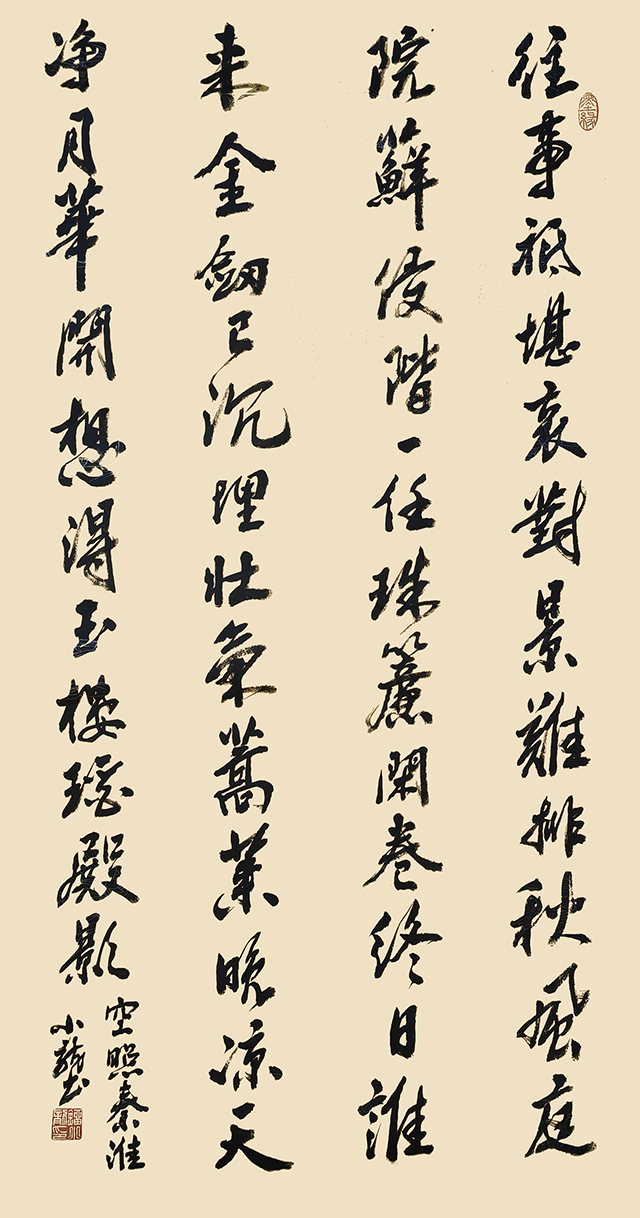 往事祗堪哀對景難排秋風庭
院蘚侵階一任珠簾閑卷終日誰
来金劔已沉埋壯氣蒿萊晚凉天
净月華開想得玉樓瑶殿影
空照秦淮
小龍書
墨缘